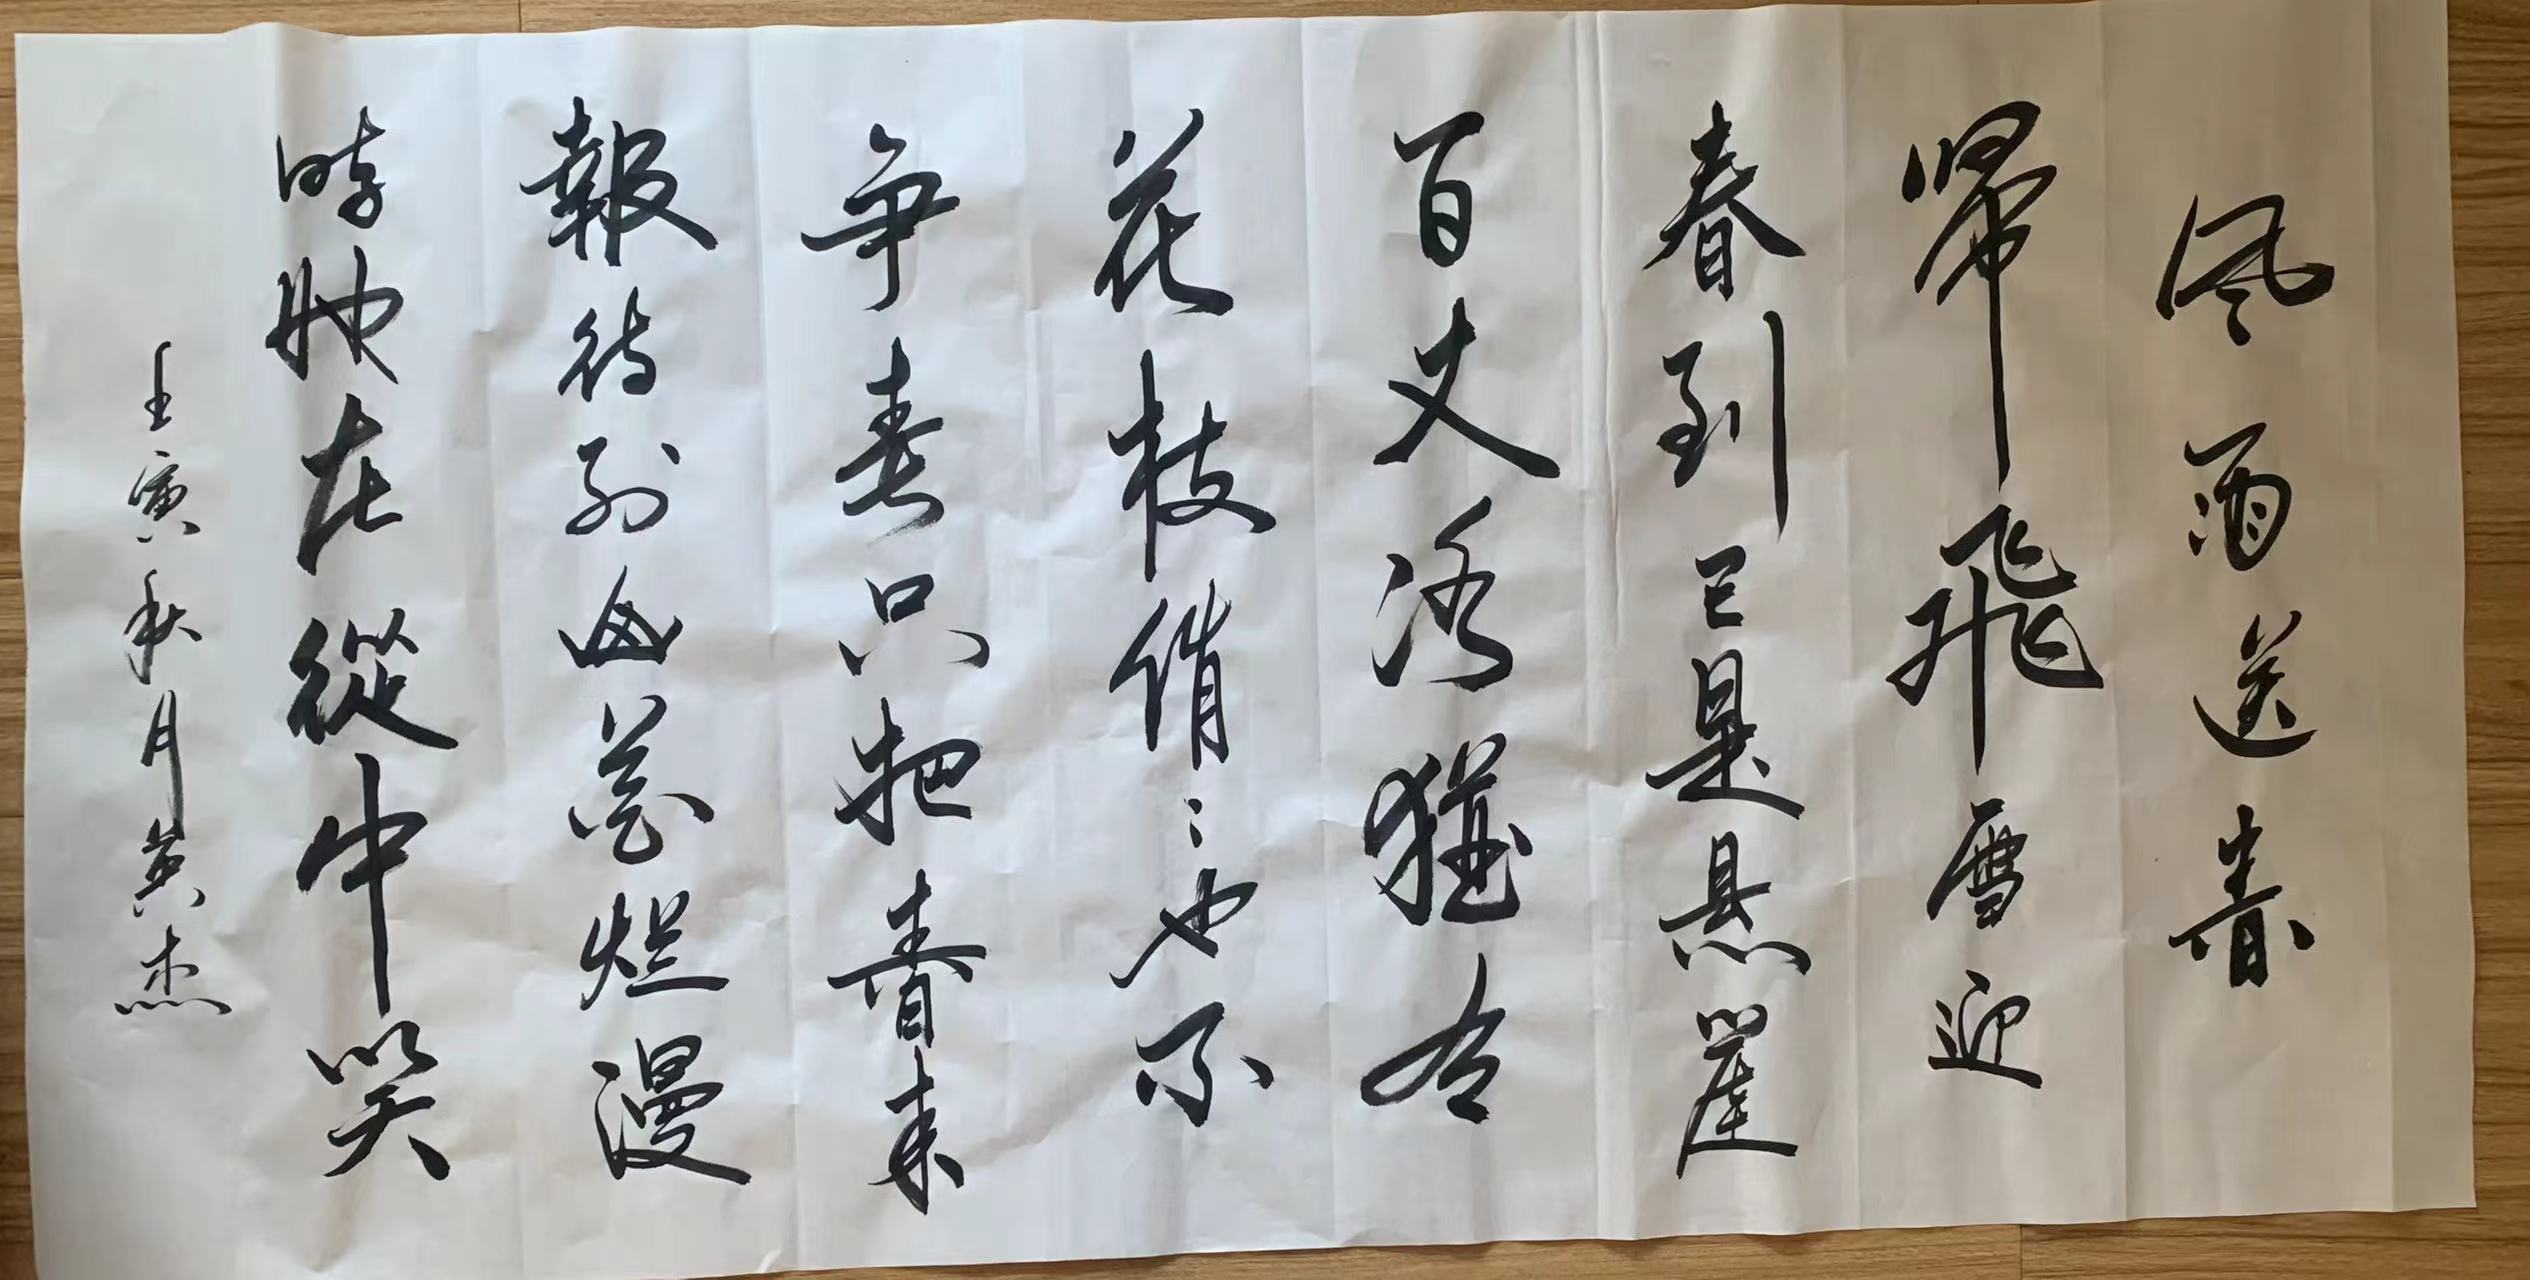 风雨送春
帰飛雪迎
春到已是悬崖
百丈冰猶有
花枝俏〻也不
争春只把春来
報待到山花烂漫
時她在從中笑
壬寅秋月黄杰